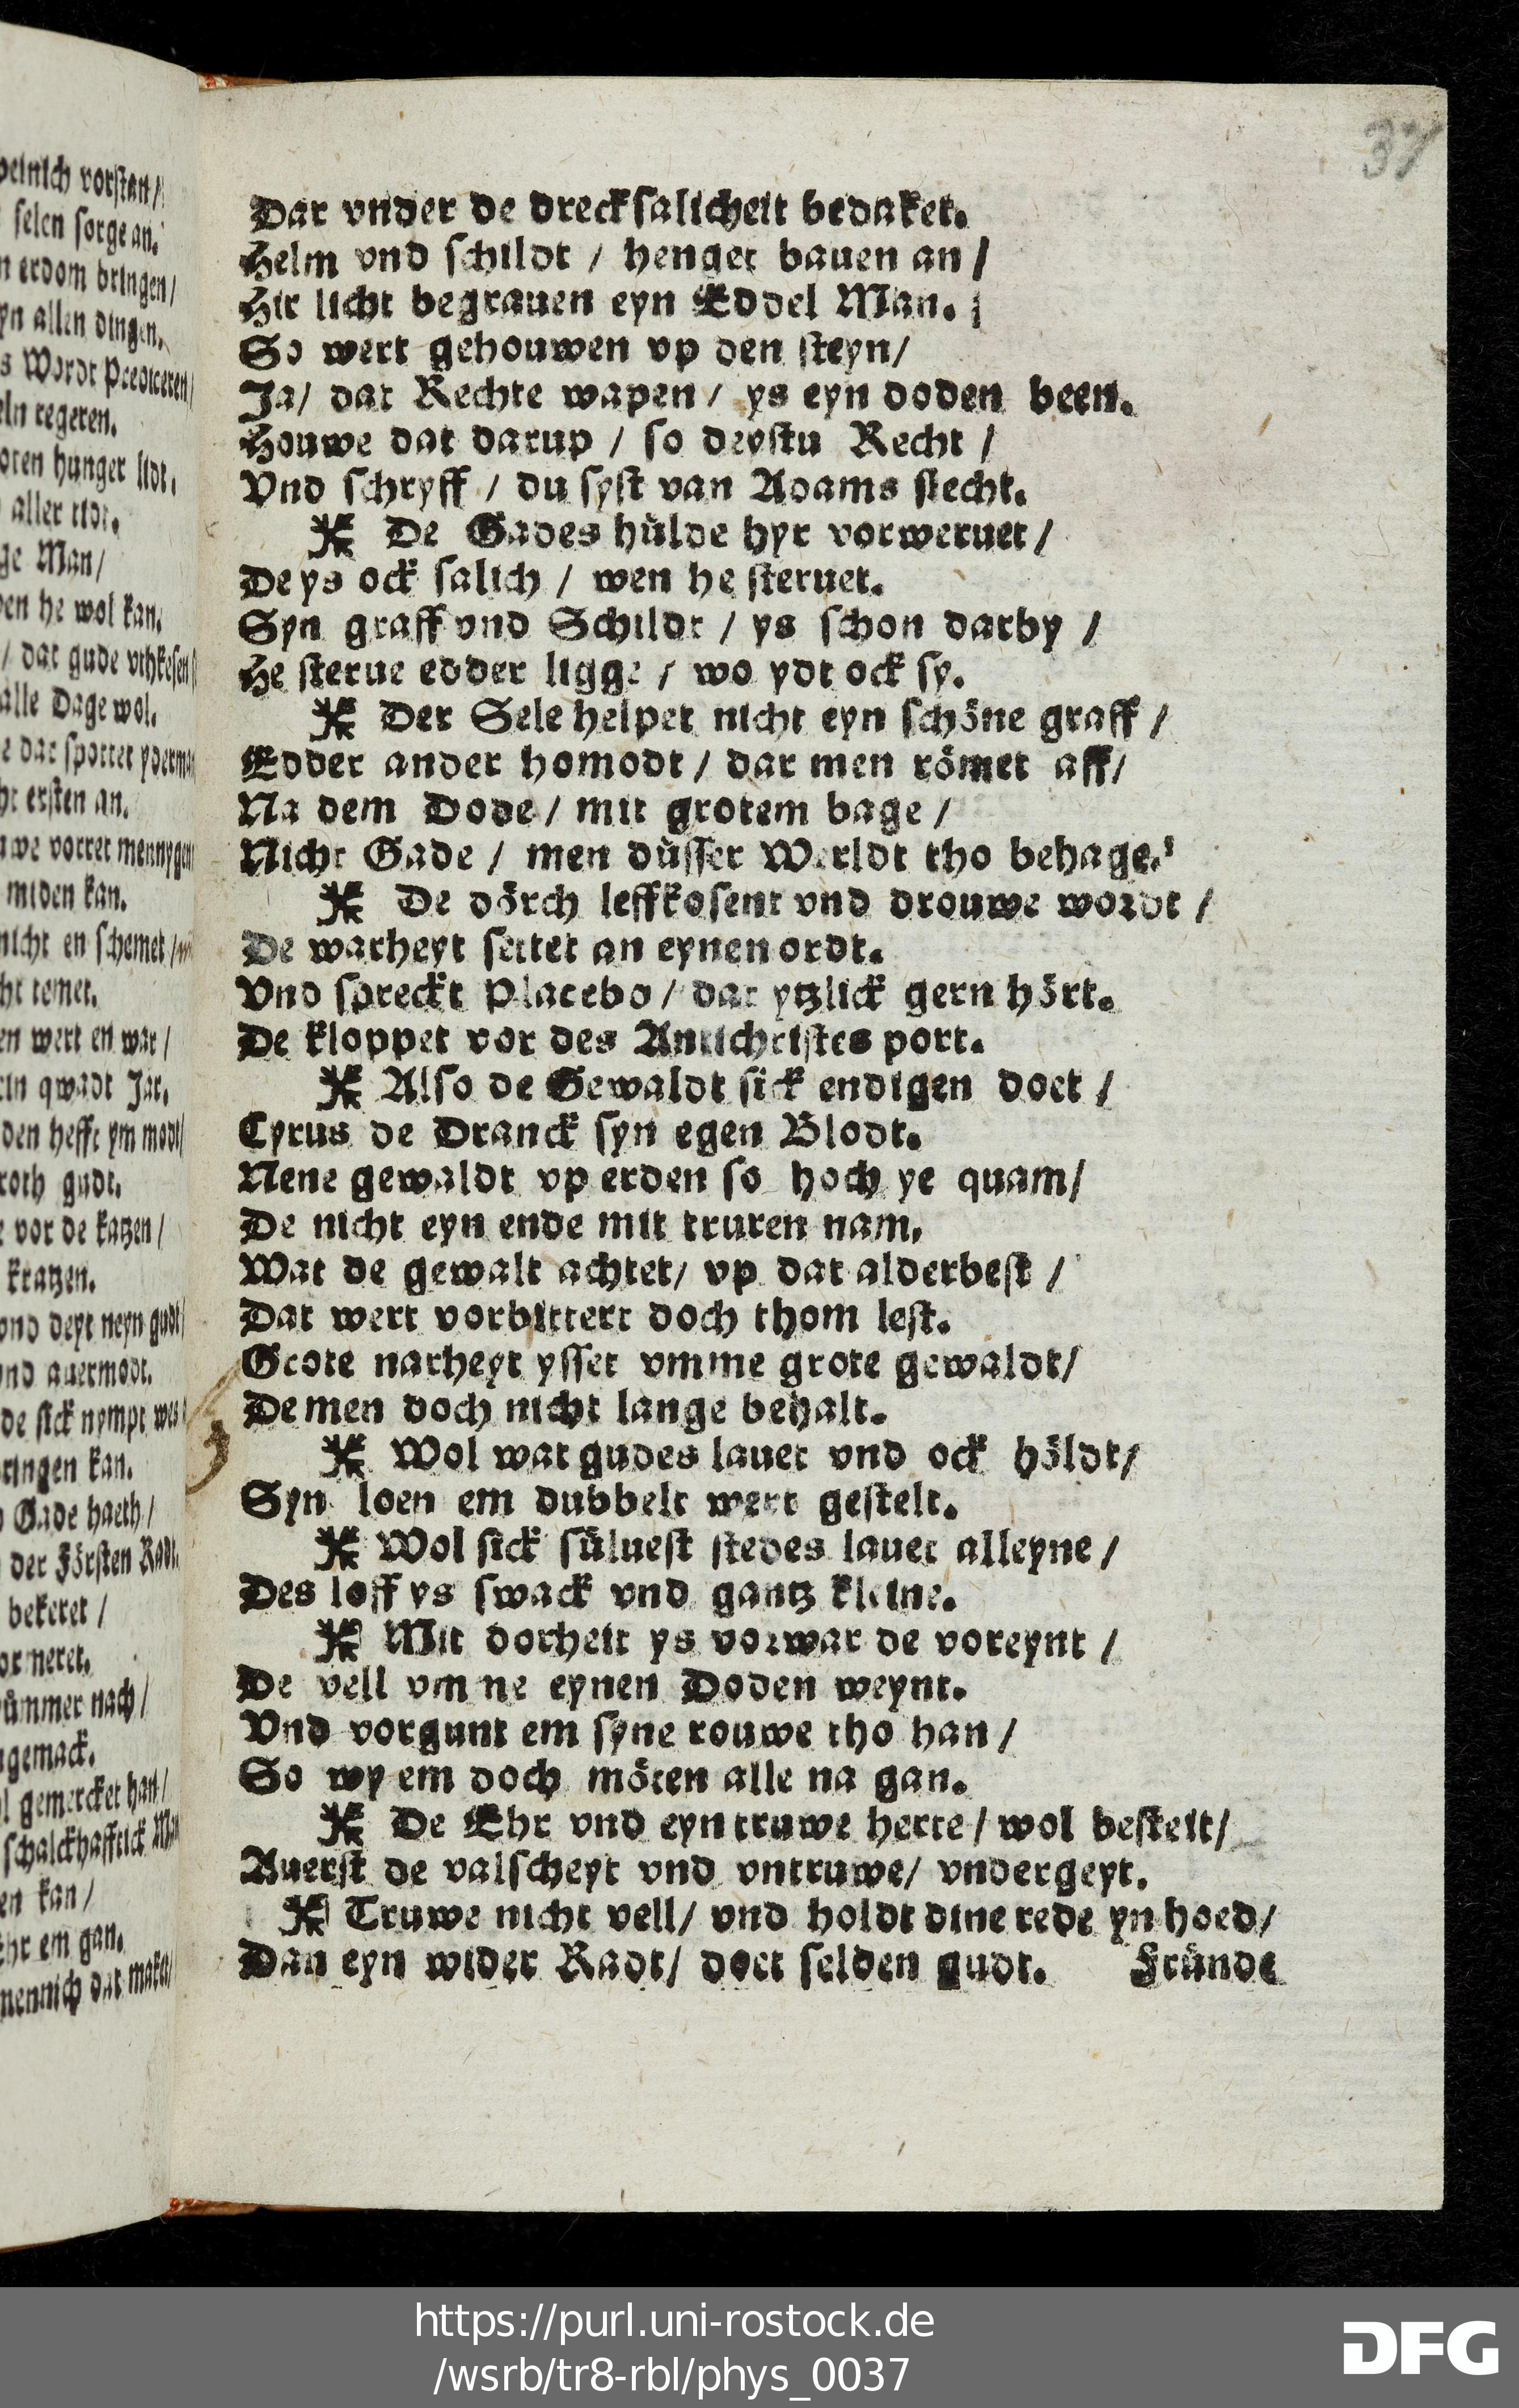 37
Dar vnder de drecksalicheit bedaket.
Helm vnd schildt / henget bauen an /
Hir licht begrauen eyn Eddel Man.
So wert gehouwen vp den steyn/
Ja/ dat Rechte wapen / ys eyn doden been.
Houwe dat darup / so deystu Recht /
Vnd schryff / du syst van Adams slecht.
⁎ De Gades hülde hyr vorweruet /
De ys ock salich / wen he steruet.
Syn graff vnd Schildt / ys schon darby /
He sterue edder ligge / wo ydt ock sy.
⁎ Der Sele helpet nicht eyn schöne graff /
Edder ander homodt / dar men römet aff/
Na dem Dode / mit grotem bage /
Nicht Gade / men düsser Werldt tho behage.
⁎ De dörch leffkosent vnd drouwe wordt /
De warheyt settet an eynen ordt.
Vnd spreckt Placebo / dat ytzlick gern hört.
De kloppet vor des Antichristes port.
⁎ Also de Gewaldt sick endigen doet /
Cyrus de Dranck syn egen Blodt.
Nene gewaldt vp erden so hoch ye quam/
De nicht eyn ende mit truren nam.
Wat de gewalt achtet/ vp dat alderbest /
Dat wert vorbittert doch thom lest.
Grote narheyt ysset vmme grote gewaldt/
De men doch nicht lange behalt.
⁎ Wol wat gudes lauet vnd ock höldt/
Syn loen em dubbelt wert gestelt.
⁎ Wol sick süluest stedes lauet alleyne /
Des loff ys swack vnd gantz kleine.
⁎ Mit dorheit ys vorwar de voreynt /
De vell vmme eynen Doden weynt.
Vnd vorgunt em syne rouwe tho han /
So wy em doch möten alle na gan.
⁎ De Ehr vnd eyn truwe herte / wol besteit/
Auerst de valscheyt vnd vntruwe/ vndergeyt.
⁎ Truwe nicht vell/ vnd holdt dine rede yn hoed/
Dan eyn wider Radt/ doet selden gudt. Fründe
https://purl.uni-rostock.de
/wsrb/tr8-rbl/phys_0037
DFG